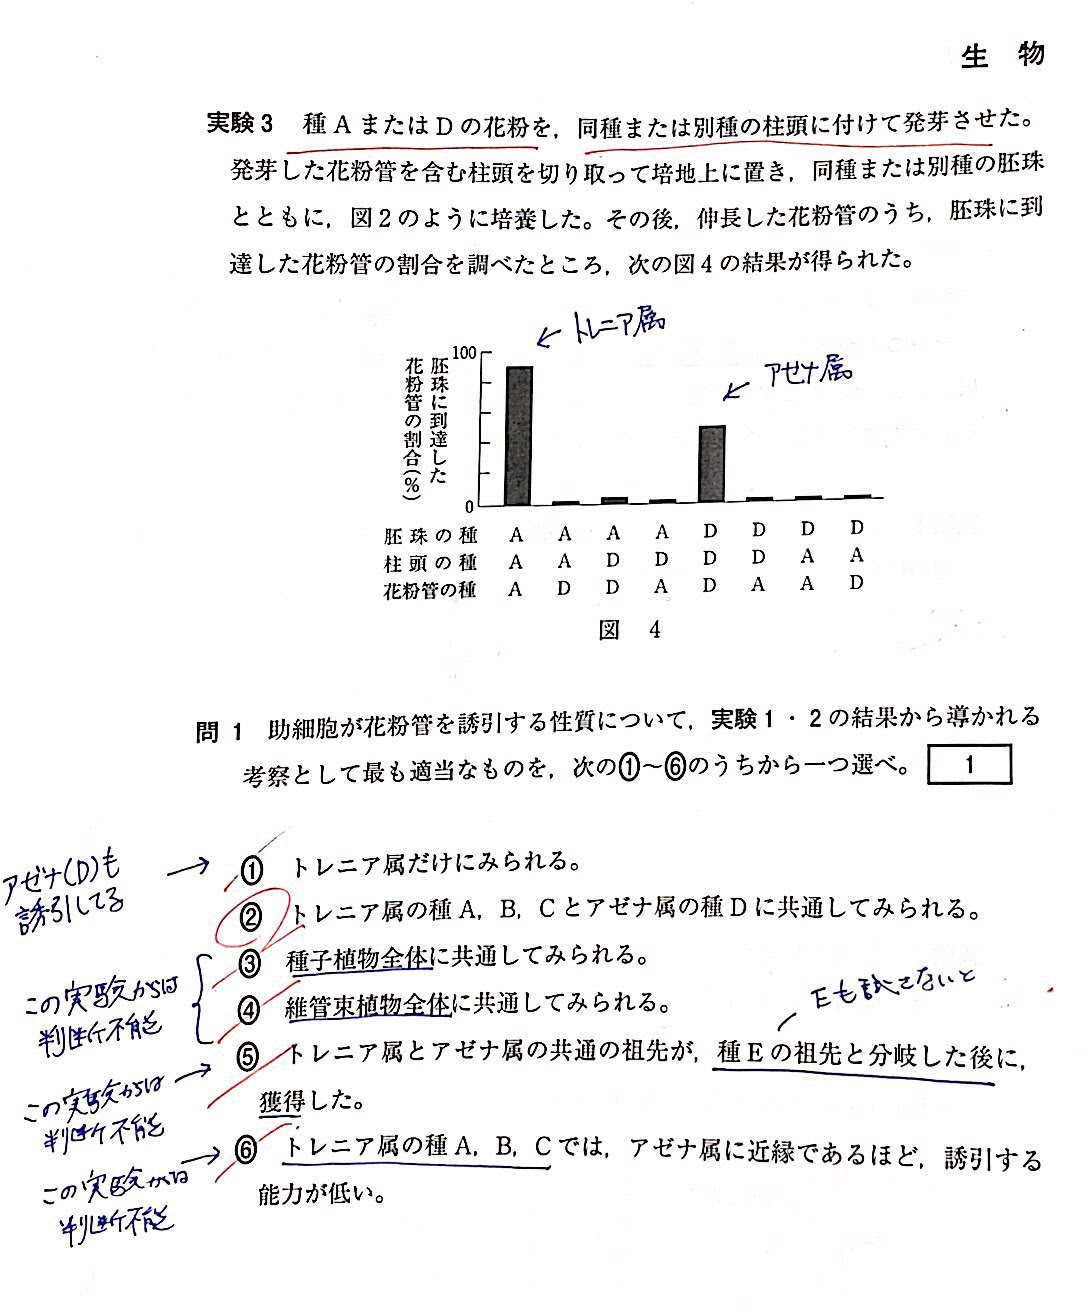 生 物
実験3 種AまたはDの花粉を，同種または別種の柱頭に付けて発芽させた。
発芽した花粉管を含む柱頭を切り取って培地上に置き，同種または別種の胚珠
とともに，図2のように培養した。その後，伸長した花粉管のうち，胚珠に到
達した花粉管の割合を調べたところ，次の図4の結果が得られた。
← トレニア属
← アゼナ属
胚珠に到達した
花粉管の割合(%)
100
0
胚珠の種 A A A A D D D D
柱頭の種 A A D D D D A A
花粉管の種 A D D A D A A D
図 4
問1 助細胞が花粉管を誘引する性質について，実験1・2の結果から導かれる
考察として最も適当なものを，次の①～⑥のうちから一つ選べ。 1
アゼナ(D)も
誘引してる
→
① トレニア属だけにみられる。
② トレニア属の種A，B，Cとアゼナ属の種Dに共通してみられる。
③ 種子植物全体に共通してみられる。
この実験からは
判断不能
④ 維管束植物全体に共通してみられる。
Eも試さないと
⑤ トレニア属とアゼナ属の共通の祖先が，種Eの祖先と分岐した後に，
獲得した。
この実験からは
判断不能
→
⑥ トレニア属の種A，B，Cでは，アゼナ属に近縁であるほど，誘引する
能力が低い。
この実験からは
判断不能
→